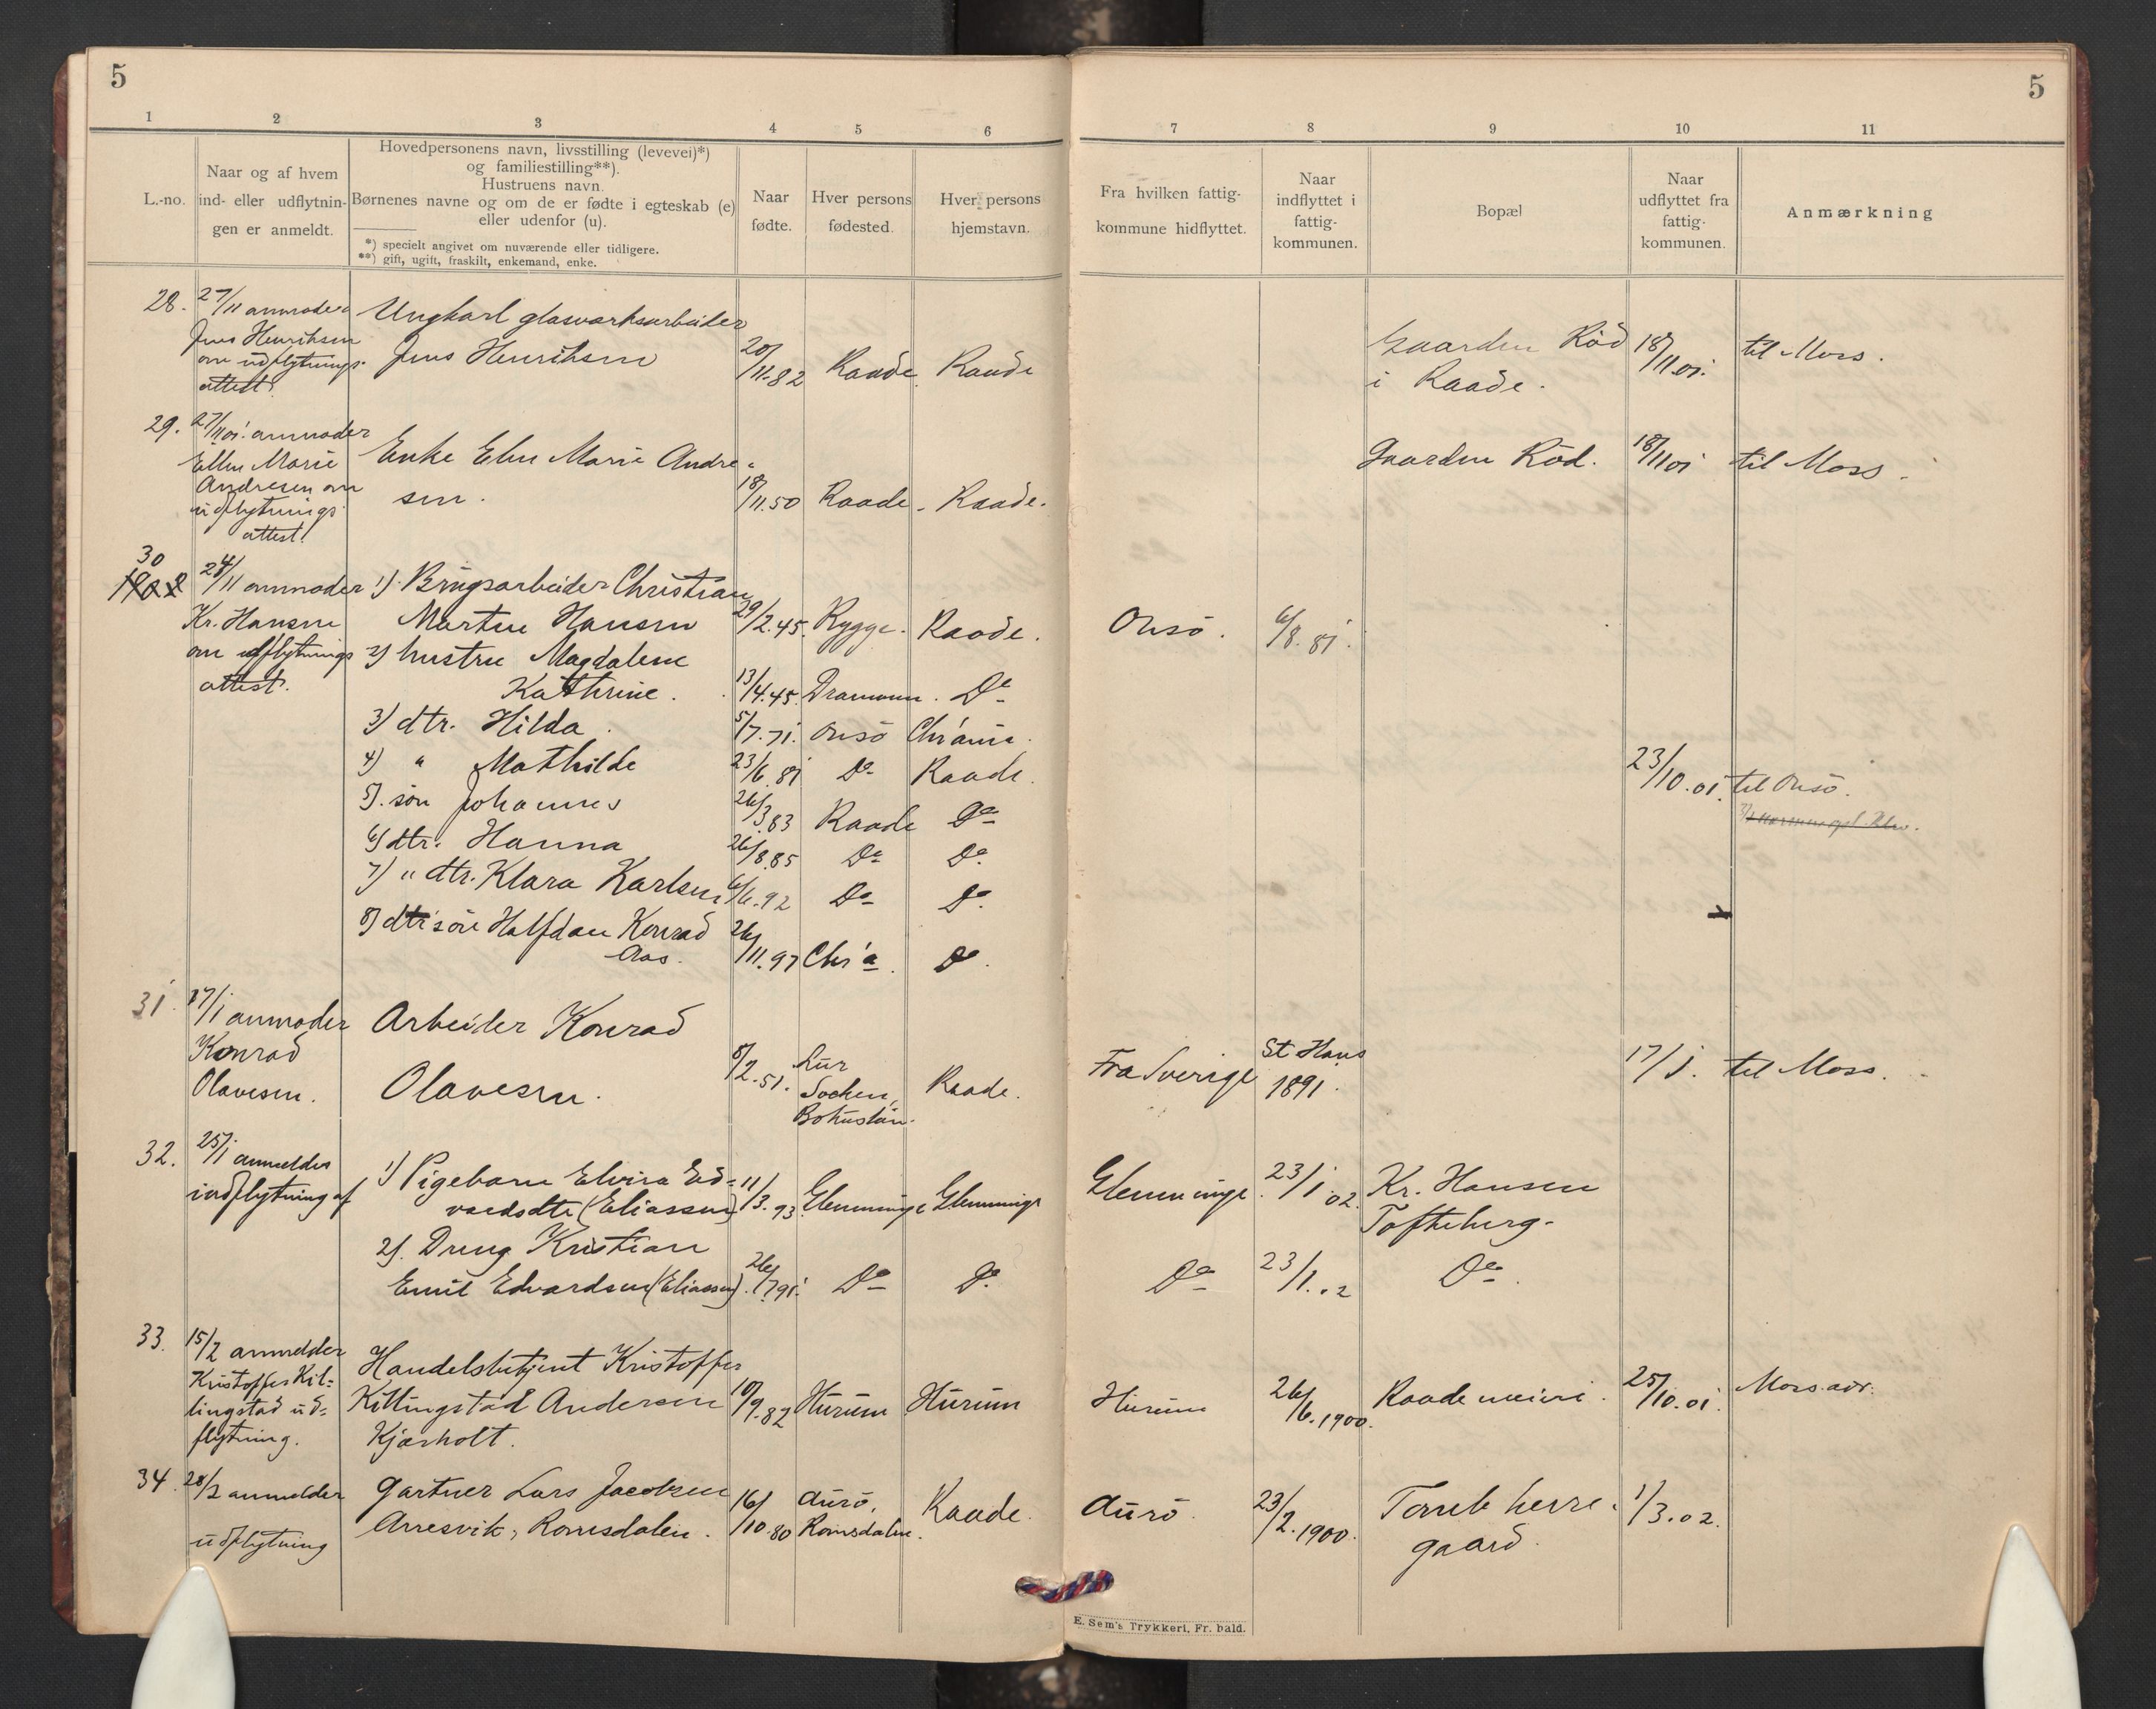 5
5
1 2 3 4 5 6 7 8 9 10 11
L.-no.
Naar og af hvem
ind- eller udflytnin-
gen er anmeldt.
Hovedpersonens navn, livsstilling (levevei)*)
og familiestilling**).
Hustruens navn.
Børnenes navne og om de er fødte i egteskab (e)
eller udenfor (u).
*) specielt angivet om nuværende eller tidligere.
**) gift, ugift, fraskilt, enkemand, enke.
Naar
fødte.
Hver persons
fødested.
Hver persons
hjemstavn.
Fra hvilken fattig-
kommune hidflyttet.
Naar
indflyttet i
fattig-
kommunen.
Bopæl
Naar
udflyttet fra
fattig-
kommunen.
Anmærkning
28.
27/11 anmoder
Jens Henriksen
om udflytnings-
attest.
Ungkarl glasværksarbeider
Jens Henriksen
20/11.82
Raade
Raade
Gaarden Röd
i Raade.
18/11.01.
til Moss.
29.
27/11 01. anmoder
Ellen Marie
Andresen om
udflytnings
attest.
Enke Elen Marie Andre-
sen.
18/11.50
Raade.
Raade.
Gaarden Röd.
18/11 01
til Moss.
30
28/11 anmoder
Kr. Hansen
om udflytnings
attest.
1). Brugsarbeider Christian
Martin Hansen
29/2.45.
Rygge.
Raade.
Onsö.
6/8.81.
2) hustru Magdalene
Kathrine.
13/4.45.
Drammen.
Do
3) dtr. Hilda.
5/7.71.
Onsö
Chr'ania.
4) " Mathilde
23/6.81
Do
Raade.
23/10.01.
til Onsö.
5). sön Johannes
26/3.83
Raade
Do
6) dtr. Hanna
26/8.85
Do
Do.
7) " dtr. Klara Karlsen
6/6.92
Do
Do.
8) dtr sön Halfdan Konrad
Aas.
26/11.97
Chr'a.
Do.
31.
17/1 anmoder
Konrad
Olavesen.
Arbeider Konrad
Olavesen.
8/2.51.
Lur
Socken,
Bohuslän.
Raade.
Fra Sverige
St Hans
1891.
17/1.
til Moss.
32.
25/1 anmeldes
indflytning af
1) Pigebarn Elvira Ed-
vardsdtr (Eliassen)
11/3.93
Glemminge
Glemminge
Glemminge.
23/1.02.
Kr. Hansen
Tofteberg.
2). Dreng Kristian
Emil Edvardsen (Eliassen).
26/7.91.
Do
Do.
Do
23/1.02
Do.
33.
15/2 anmelder
Kristoffer Kil-
lingstad ud-
flytning.
Handelsbetjent Kristoffer
Killingstad Andersen
Kjærholt.
10/9.82
Hurum
Hurum
Hurum
26/6.1900.
Raade meieri.
25/10.01.
Moss adr.
34.
28/2 anmelder
udflytning
Gartner Lars Jacobsen
Arresvik, Romsdalen.
16/10.80
Aurö,
Romsdalen.
Raade.
Aurö.
23/2.1900.
Tomb herre-
gaard.
1/3.02.
E. Sem's Trykkeri, Fr. hald.